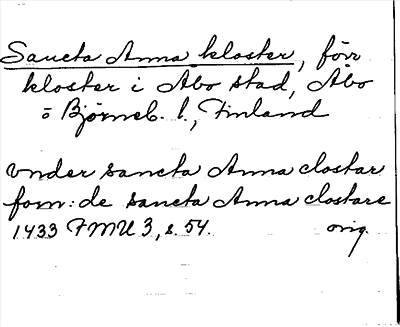 Sancta Anna kloster, förr
kloster i Åbo stad, Åbo
o Björneb. l., Finland
vnder sancta Anna clostar
forn: de sancta Anna clostare
1433 FMU 3, s. 54. orig.